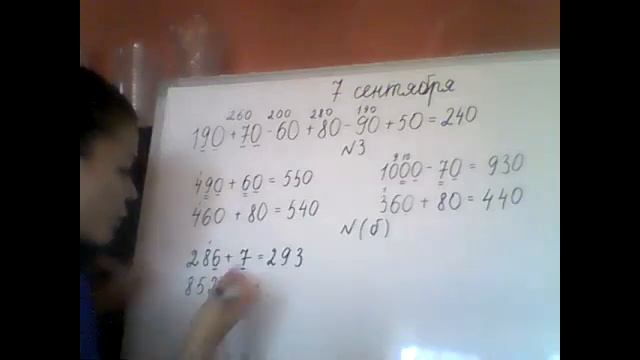 7 сентября
260 200 280 190
190 + 70 - 60 + 80 - 90 + 50 = 240
N3
490 + 60 = 550
460 + 80 = 540
9 10
1000 - 70 = 930
360 + 80 = 440
N(б)
286 + 7 = 293